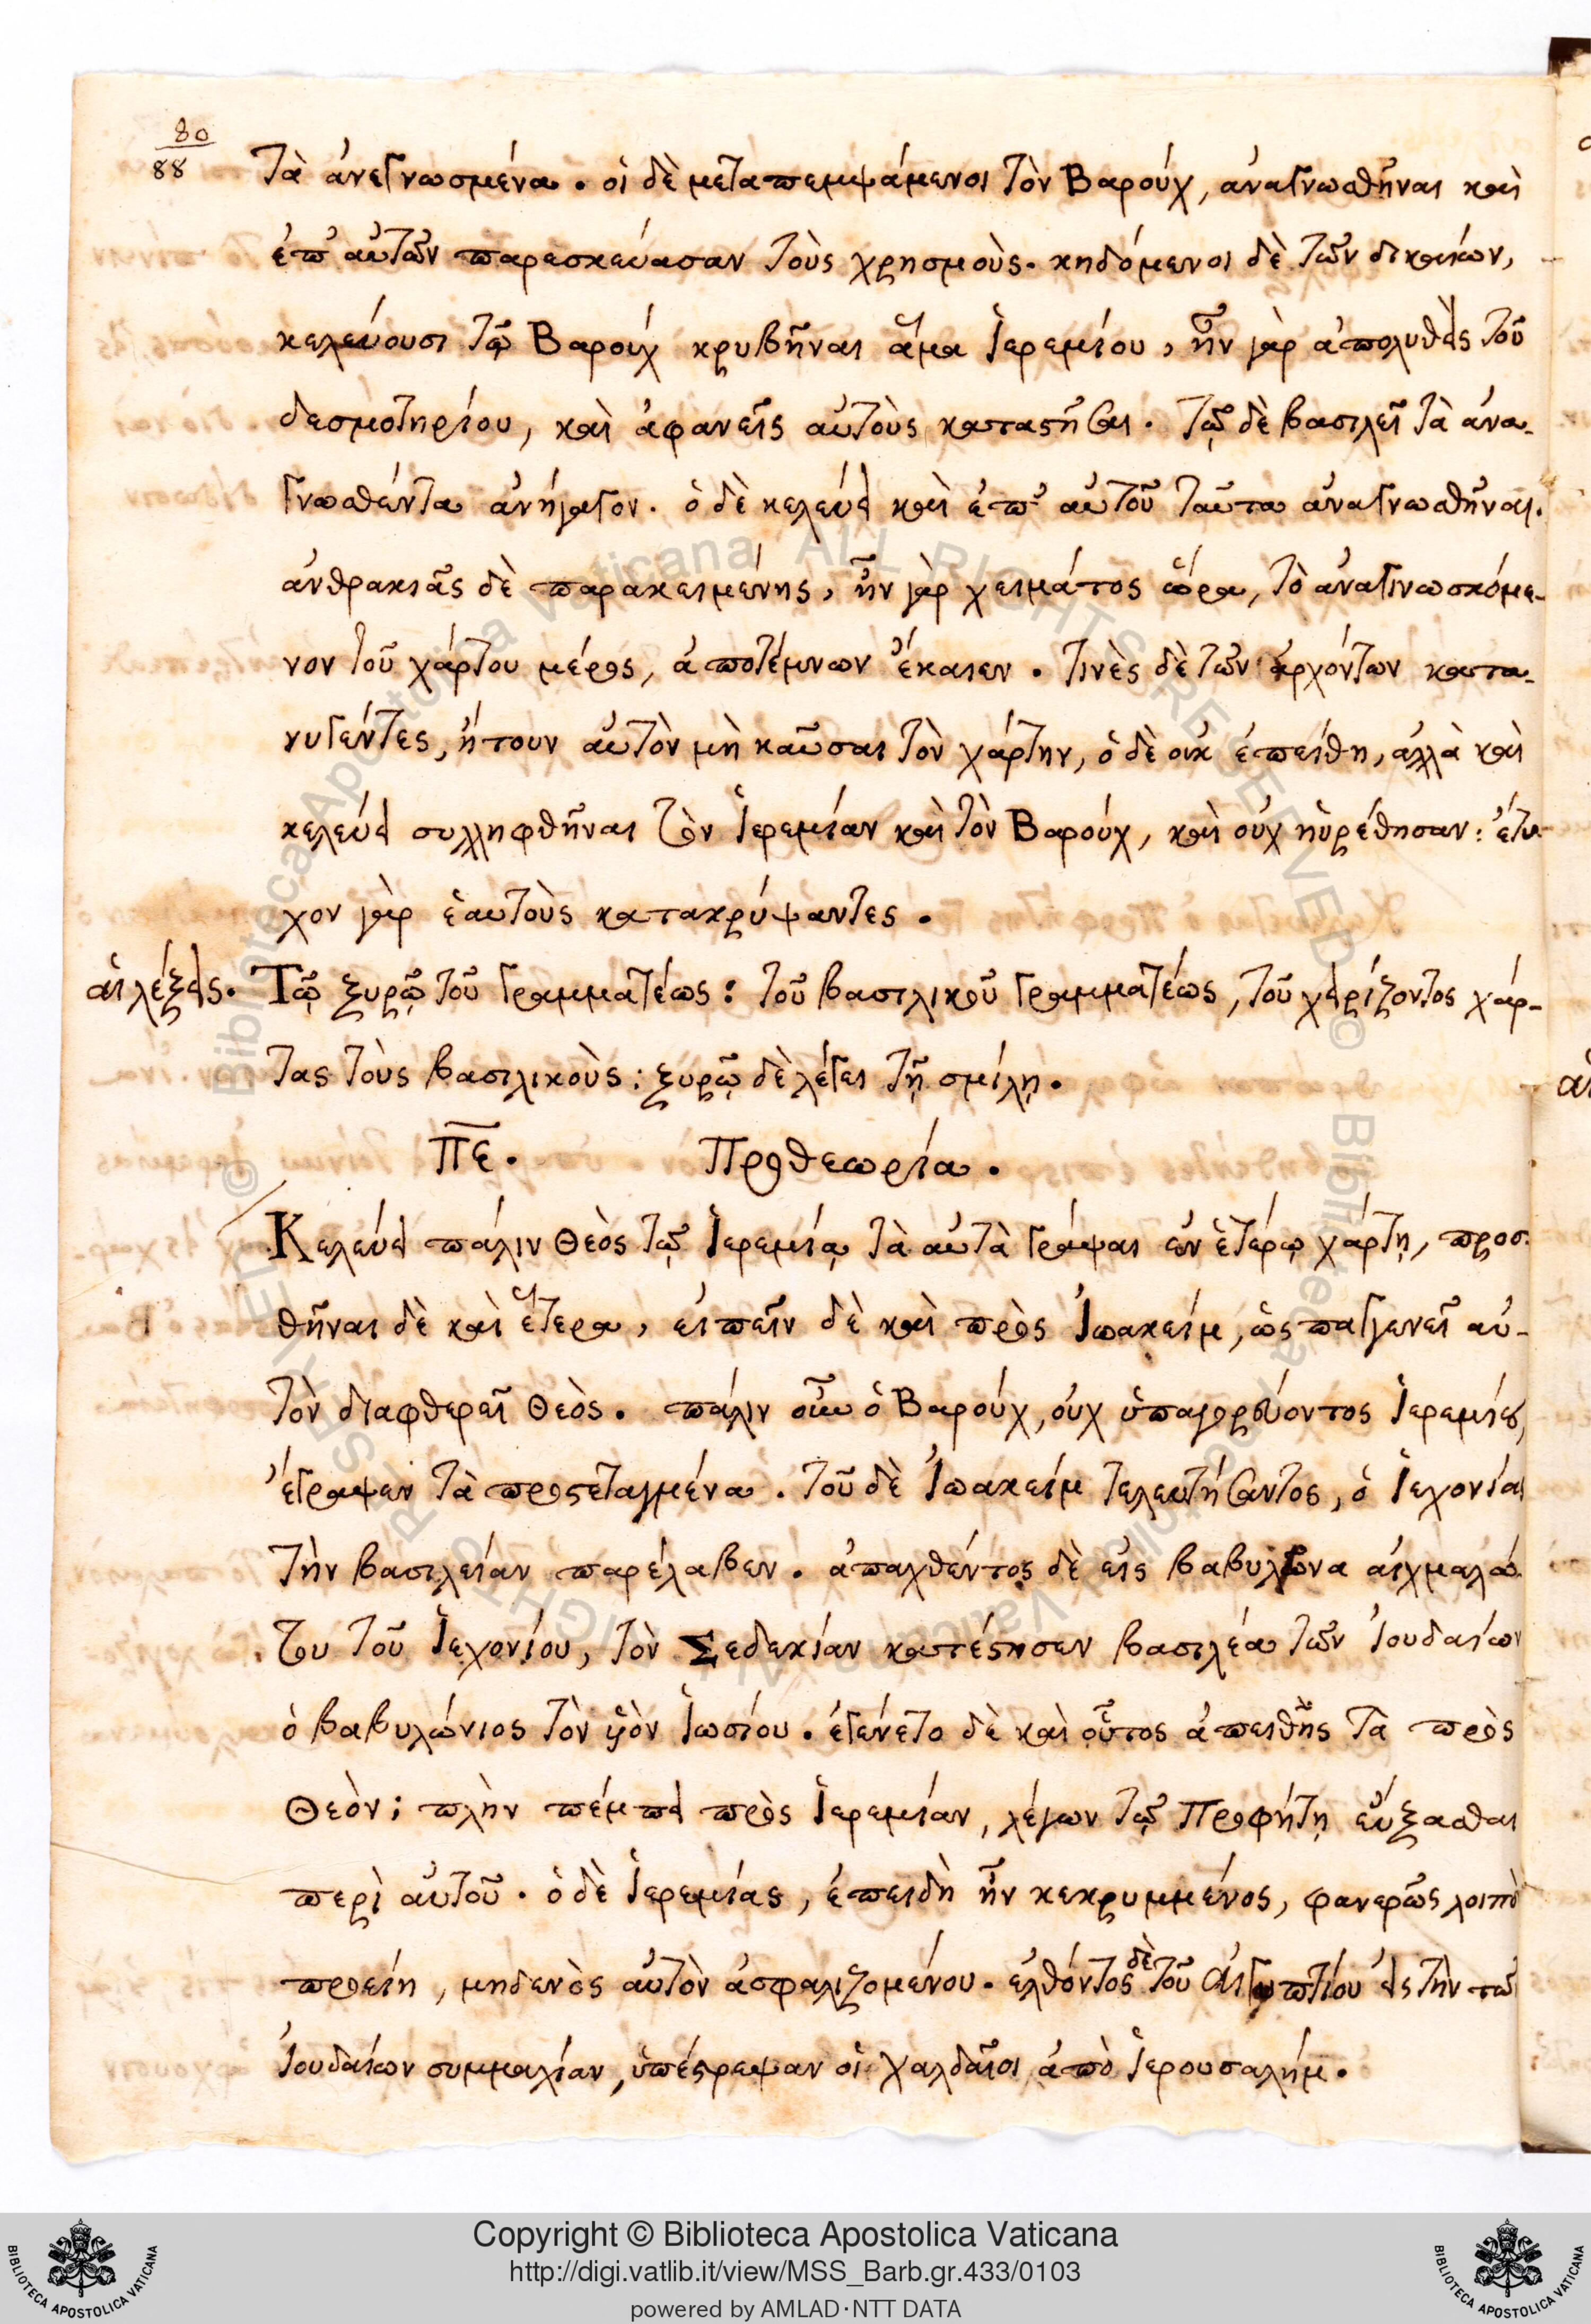 80
88
τὰ ἀνεγνωσμένα. οἱ δὲ μεταπεμψάμενοι τὸν Βαρούχ, ἀναγνωσθῆναι καὶ
ἐπ' αὐτῶν παρεσκεύασαν τοὺς χρησμούς. κηδόμενοι δὲ τῶν δικαίων,
κελεύουσι τῷ Βαροὺχ κρυβῆναι ἅμα Ἱερεμίου, ἦν γὰρ ἀπολυθεὶς τοῦ
δεσμοτηρίου, καὶ ἀφανεῖς αὐτοὺς καταστῆσαι. τῷ δὲ βασιλεῖ τὰ ἀνα-
γνωσθέντα ἀνήγαγον. ὁ δὲ κελεύει καὶ ἐπ' αὐτοῦ ταῦτα ἀναγνωσθῆναι.
ἀνθρακιᾶς δὲ παρακειμένης, ἦν γὰρ χειμάτος ὥρα, τὸ ἀναγινωσκόμε-
νον τοῦ χάρτου μέρος, ἀποτέμνων ἔκαιεν. τινὲς δὲ τῶν ἀρχόντων κατα-
νυγέντες, ᾔτουν αὐτὸν μὴ καῦσαι τὸν χάρτην, ὁ δὲ οὐκ ἐπείθη, ἀλλὰ καὶ
κελεύει συλληφθῆναι τὸν Ἱερεμίαν καὶ τὸν Βαρούχ, καὶ οὐχ ηὑρέθησαν: ἔτυ-
χον γὰρ ἑαυτοὺς κατακρύψαντες.
αἱ λέξεις. Τῷ ξυρῷ τοῦ γραμματέως: τοῦ βασιλικοῦ γραμματέως, τοῦ χειρίζοντος χάρ-
τας τοὺς βασιλικούς: ξυρῷ δὲ λέγει τῇ σμίλῃ.
ΠΕ. Προθεωρία.
Κελεύει πάλιν Θεὸς τῷ Ἱερεμίᾳ τὰ αὐτὰ γράψαι ἐν ἑτέρῳ χάρτῃ, προσ-
θῆναι δὲ καὶ ἕτερα, εἰπεῖν δὲ καὶ πρὸς Ἰωακείμ, ὡς παγγενεῖ αὐ-
τὸν διαφθερεῖ Θεός. πάλιν οὖν ὁ Βαρούχ, οὐχ ὑπαγορεύοντος Ἱερεμίου,
ἔγραψεν τὰ προστεταγμένα. τοῦ δὲ Ἰωακεὶμ τελευτήσαντος, ὁ Ἰεχονίας
τὴν βασιλείαν παρέλαβεν. ἀπαχθέντος δὲ εἰς βαβυλῶνα αἰχμαλώ-
του τοῦ Ἰεχονίου, τὸν Σεδεκίαν κατέστησεν βασιλέα τῶν Ἰουδαίων
ὁ βαβυλώνιος τὸν υἱὸν Ἰωσίου. ἐγένετο δὲ καὶ οὗτος ἀπειθὴς τὰ πρὸς
Θεόν; πλὴν πέμπει πρὸς Ἱερεμίαν, λέγων τῷ Προφήτῃ εὔξασθαι
περὶ αὐτοῦ. ὁ δὲ Ἱερεμίας, ἐπειδὴ ἦν κεκρυμμένος, φανερῶς λοιπὸν
προείη, μηδενὸς αὐτὸν ἀσφαλιζομένου. ἐλθόντος δὲ τοῦ Αἰγυπτίου εἰς τὴν τῶν
Ἰουδαίων συμμαχίαν, ὑπέστρεψαν οἱ χαλδαῖοι ἀπὸ Ἱερουσαλήμ.
Copyright © Biblioteca Apostolica Vaticana
http://digi.vatlib.it/view/MSS_Barb.gr.433/0103
powered by AMLAD·NTT DATA